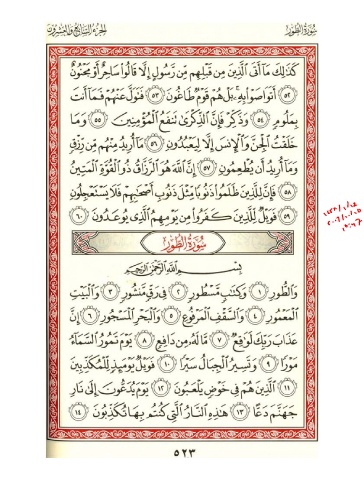 سُورَةُ الطُّورِ
الجُزْءُ السَّابِعُ وَالعِشْرُونَ
كَذَٰلِكَ مَا أَتَى الَّذِينَ مِن قَبْلِهِم مِّن رَّسُولٍ إِلَّا قَالُوا سَاحِرٌ أَوْ مَجْنُونٌ
٥٢ أَتَوَاصَوْا بِهِ بَلْ هُمْ قَوْمٌ طَاغُونَ ٥٣ فَتَوَلَّ عَنْهُمْ فَمَا أَنتَ
بِمَلُومٍ ٥٤ وَذَكِّرْ فَإِنَّ الذِّكْرَىٰ تَنفَعُ الْمُؤْمِنِينَ ٥٥ وَمَا
خَلَقْتُ الْجِنَّ وَالْإِنسَ إِلَّا لِيَعْبُدُونِ ٥٦ مَا أُرِيدُ مِنْهُم مِّن رِّزْقٍ
وَمَا أُرِيدُ أَن يُطْعِمُونِ ٥٧ إِنَّ اللَّهَ هُوَ الرَّزَّاقُ ذُو الْقُوَّةِ الْمَتِينُ
٥٨ فَإِنَّ لِلَّذِينَ ظَلَمُوا ذَنُوبًا مِّثْلَ ذَنُوبِ أَصْحَابِهِمْ فَلَا يَسْتَعْجِلُونِ
٥٩ فَوَيْلٌ لِّلَّذِينَ كَفَرُوا مِن يَوْمِهِمُ الَّذِي يُوعَدُونَ ٦٠
سُورَةُ الطُّورِ
بِسْمِ اللَّهِ الرَّحْمَٰنِ الرَّحِيمِ
وَالطُّورِ ١ وَكِتَابٍ مَّسْطُورٍ ٢ فِي رَقٍّ مَّنشُورٍ ٣ وَالْبَيْتِ
الْمَعْمُورِ ٤ وَالسَّقْفِ الْمَرْفُوعِ ٥ وَالْبَحْرِ الْمَسْجُورِ ٦ إِنَّ
عَذَابَ رَبِّكَ لَوَاقِعٌ ٧ مَّا لَهُ مِن دَافِعٍ ٨ يَوْمَ تَمُورُ السَّمَاءُ
مَوْرًا ٩ وَتَسِيرُ الْجِبَالُ سَيْرًا ١٠ فَوَيْلٌ يَوْمَئِذٍ لِّلْمُكَذِّبِينَ
١١ الَّذِينَ هُمْ فِي خَوْضٍ يَلْعَبُونَ ١٢ يَوْمَ يُدَعُّونَ إِلَىٰ نَارِ
جَهَنَّمَ دَعًّا ١٣ هَٰذِهِ النَّارُ الَّتِي كُنتُم بِهَا تُكَذِّبُونَ ١٤
٥٢٣